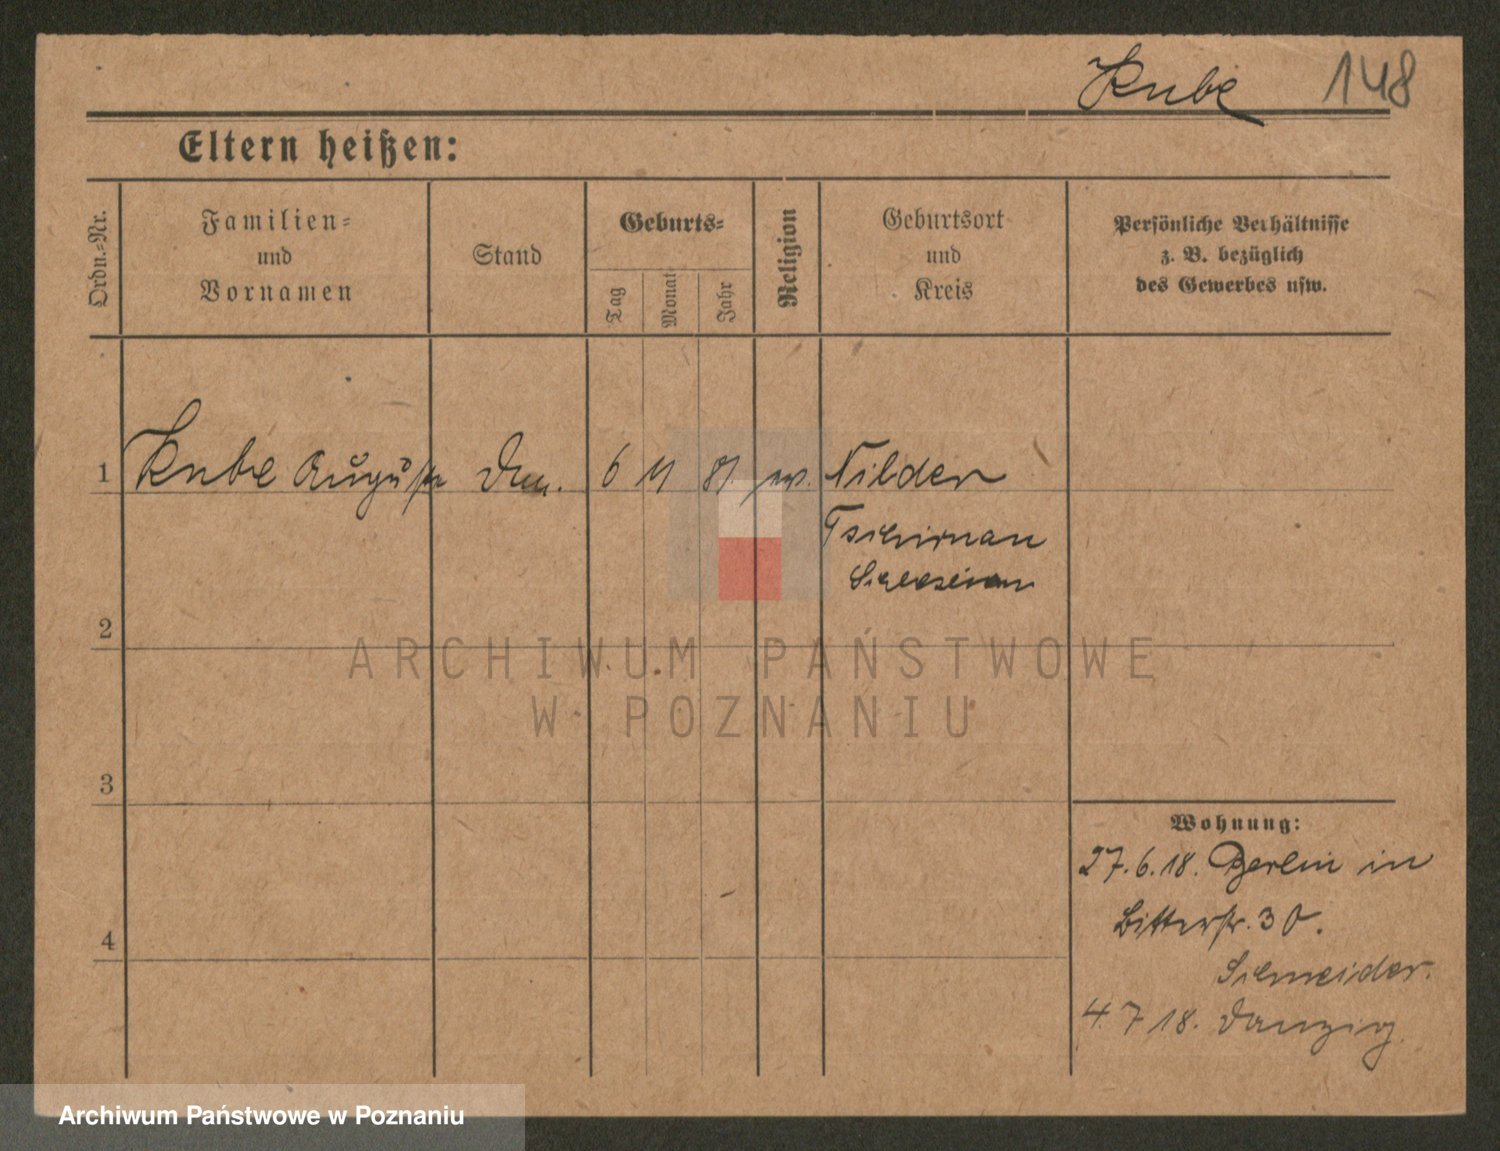 Kube 148
Eltern heißen:
Ordn.-Nr.
Familien-
und
Vornamen
Stand
Geburts-
Tag
Monat
Jahr
Religion
Geburtsort
und
Kreis
Persönliche Verhältnisse
z. B. bezüglich
des Gewerbes usw.
1 Kube 6 11 81. ev.
Tschirnau
2
ARCHIWUM PAŃSTWOWE
W POZNANIU
3
4
Wohnung:
27.6.18. Berlin in
Ritterstr. 30.
Schneider.
4. 7 18. Danzig.
Archiwum Państwowe w Poznaniu